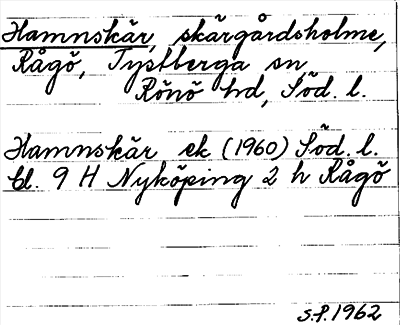 Hamnskär, skärgårdsholme,
Rågö, Tystberga sn
Rönö hd, Söd. l.
Hamnskär ek (1960) Söd. l.
Bl. 9 H Nyköping 2 h Rågö
S.P. 1962